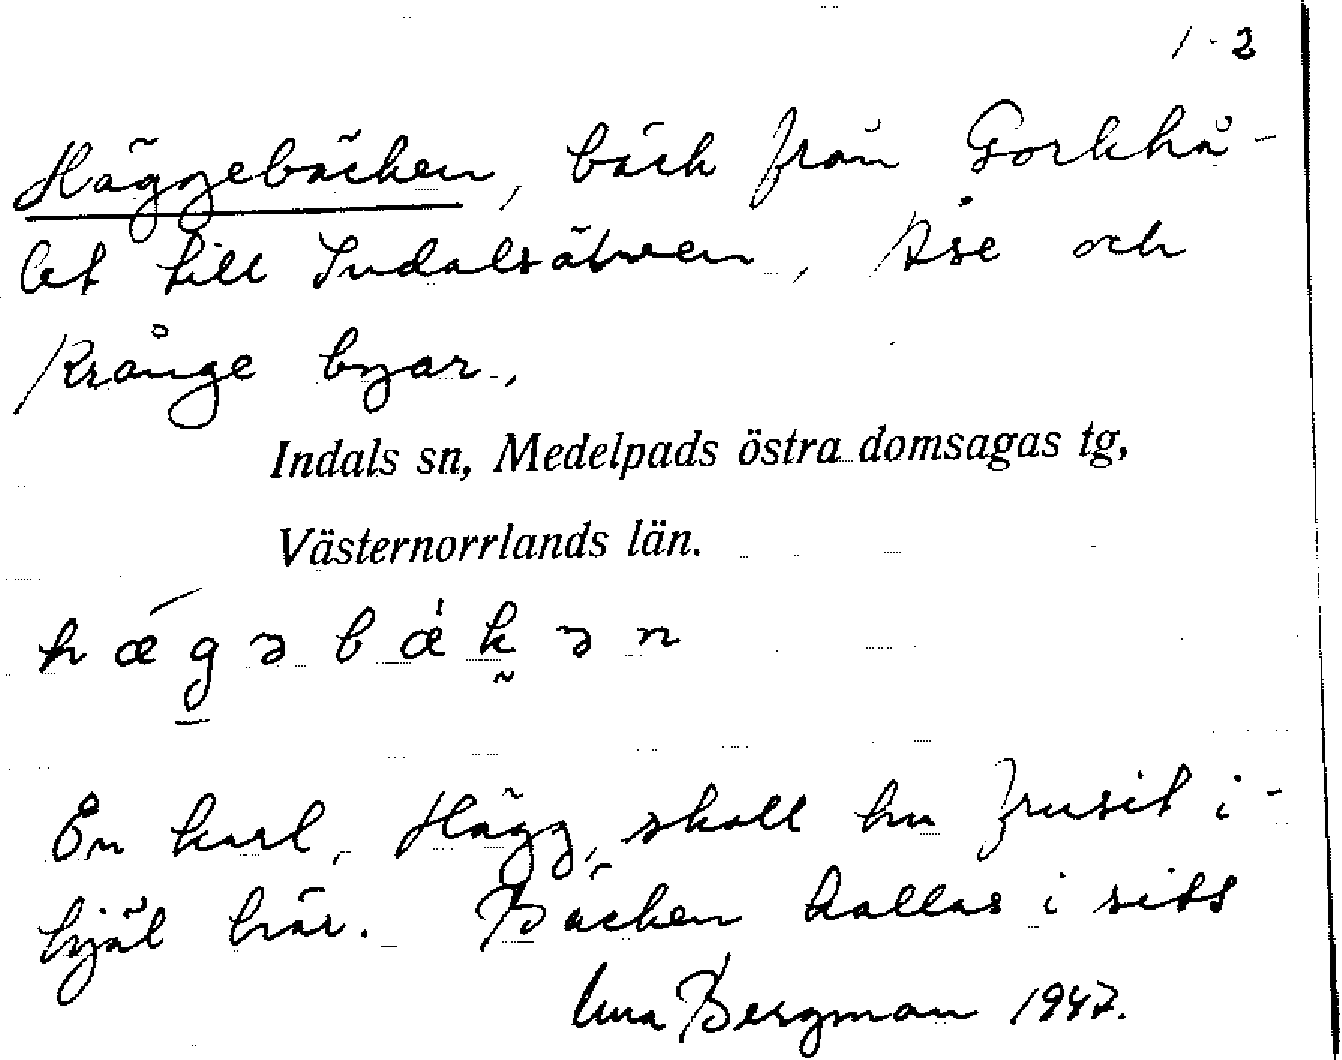 1-2
Häggebäcken, bäck från Gorkhå-
let till Indalsälven, Åse och
Krånge byar.,
Indals sn, Medelpads östra domsagas tg,
Västernorrlands län.
hǽgəbæ̀kən
En karl, Hägg, skall ha frusit i-
hjäl här. Bäcken kallas i sitt
Bergman 1947.